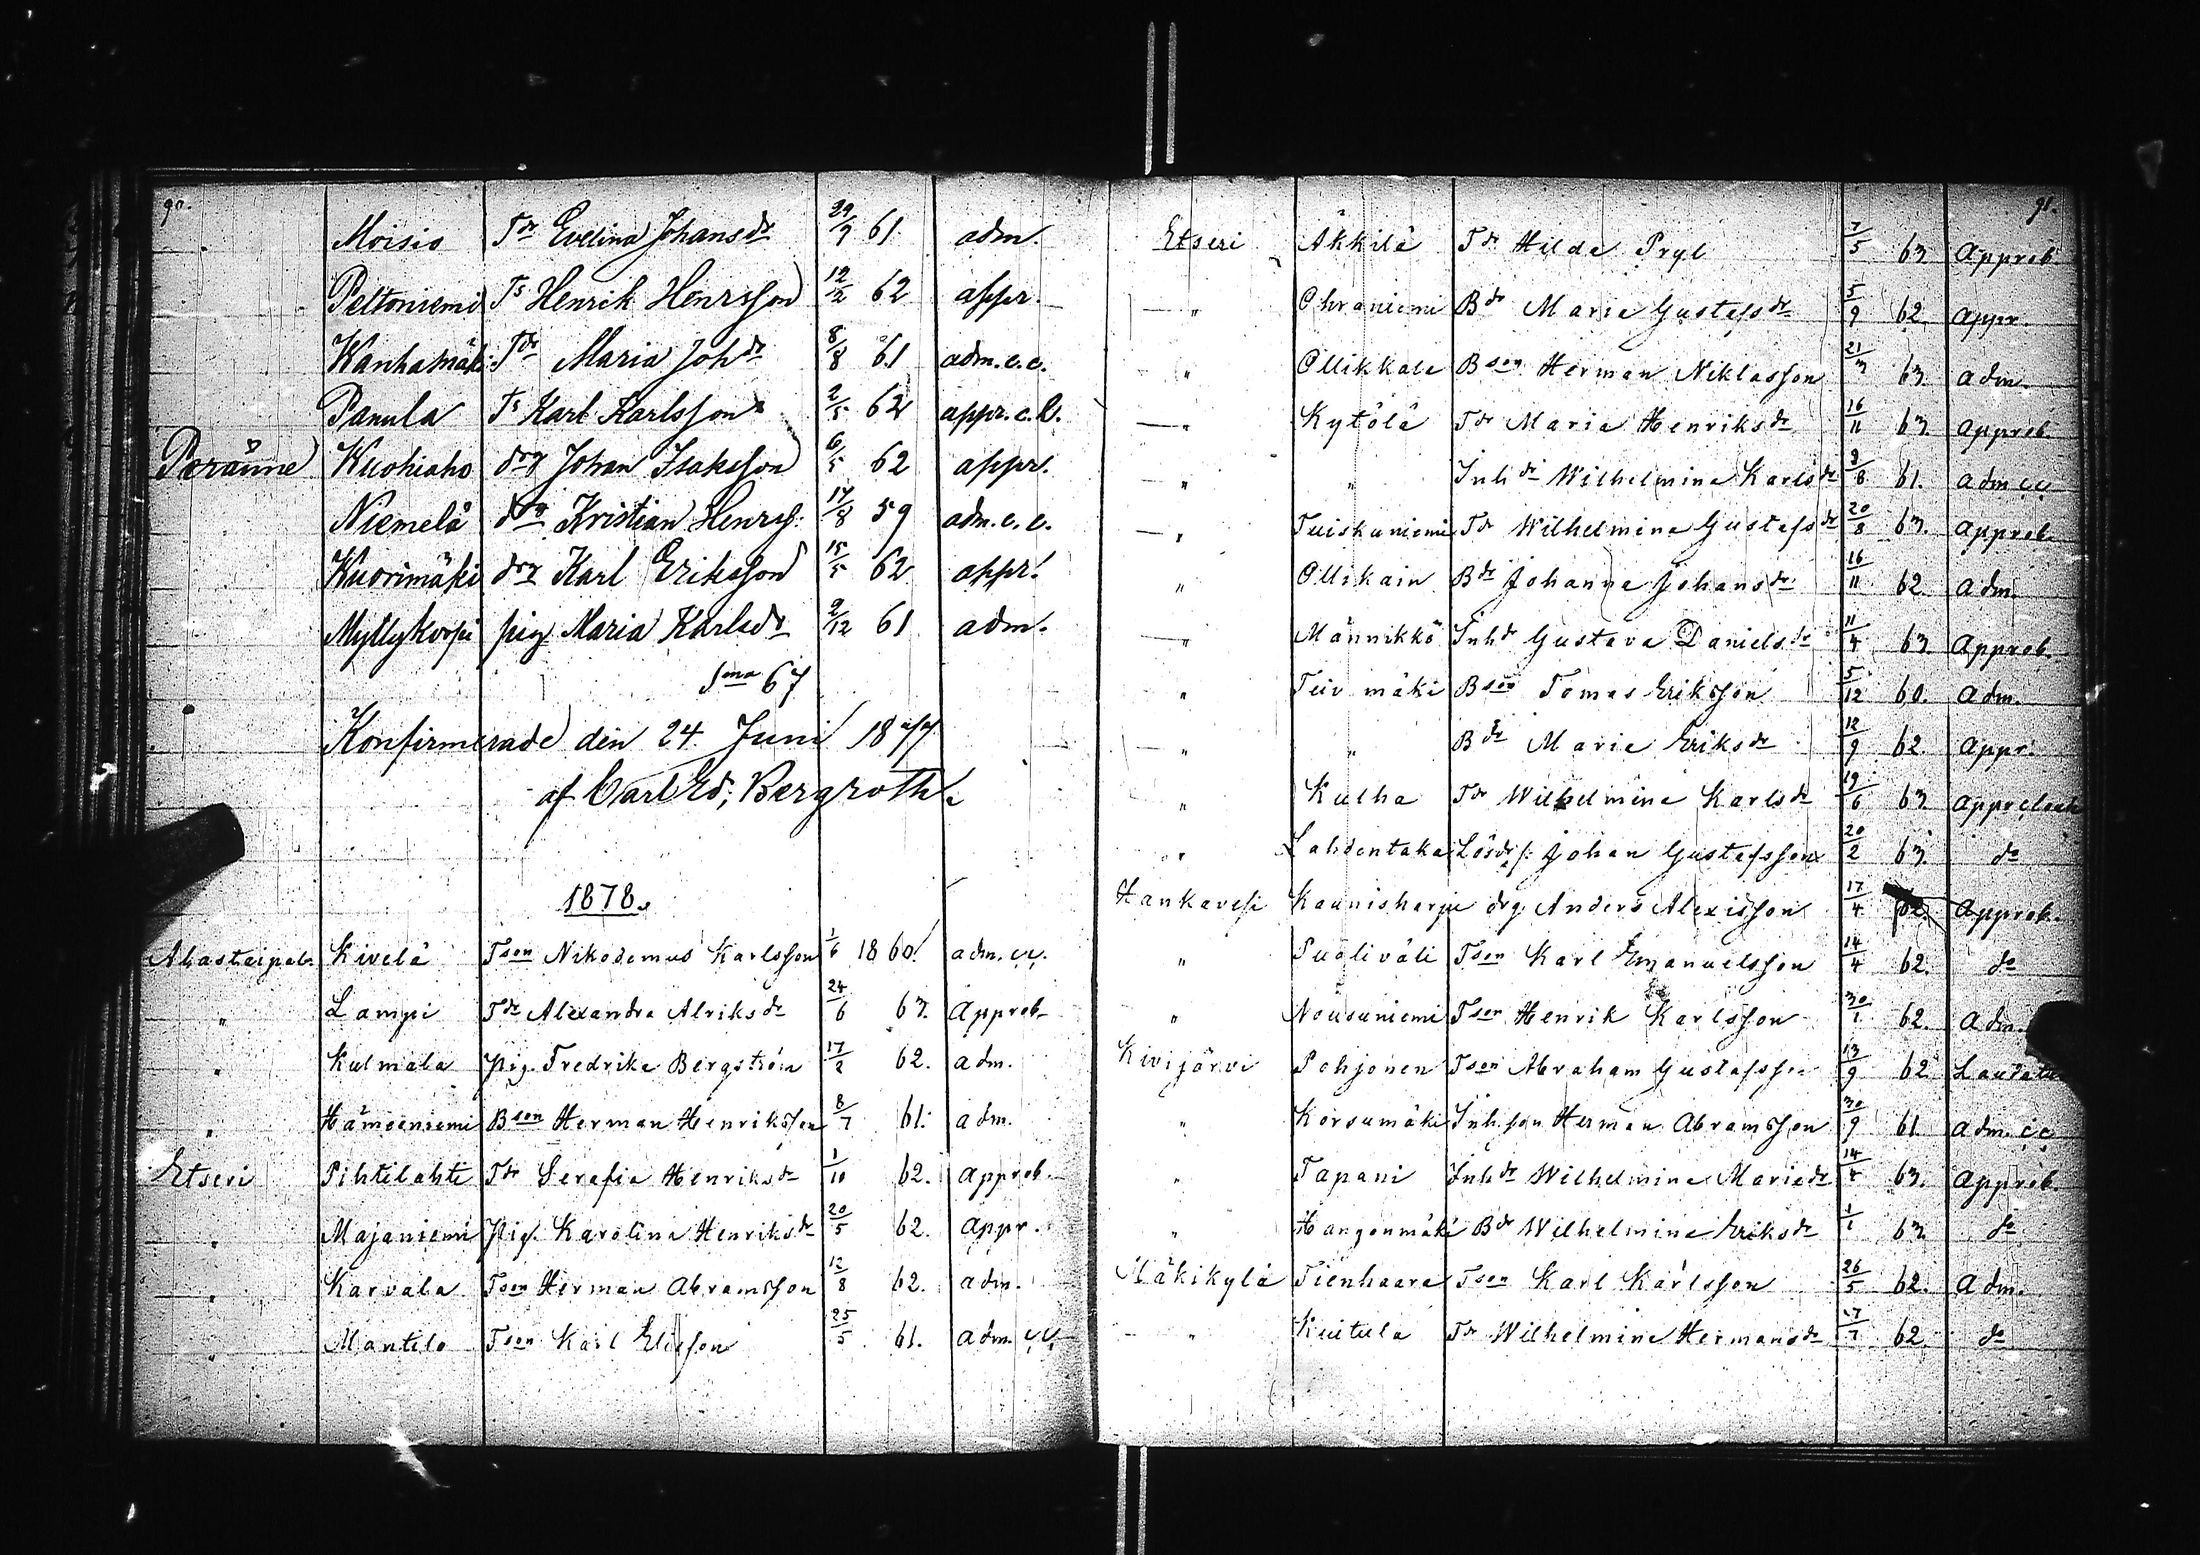 90.
Moisio Tdr Evelina Johansdr 29/7 61 adm.
Peltoniemi Ts Henrik Henrsson 12/2 62 appr.
Kanhamäki Tdr Maria Johdr 8/8 61 adm. c. c.
Panula Ts Karl Karlsson 2/5 62 appr. c. l.
Peränne Kuohiaho drg Johan Isaksson 6/5 62 appr.
Niemelä drg Kristian Henrss. 17/8 59 adm. c. c.
Kuorimäki drg Karl Eriksson 15/5 62 appr.
Myllykorpi pig. Maria Karlsdr 2/12 61 adm.
Sma 67
Konfirmerade den 24 Juni 1877
af Carl Ed; Bergroth.
1878.
Alastaipal. Kivelä Tson Nikodemus Karlsson 1/6 1860. adm. c.c.
" Lampi Tdr Alexandra Alriksdr 24/6 63. Approb.
" Kulmala Pig. Fredrika Bergström 17/2 62. adm.
" Hämeeniemi Bson Herman Henriksson 8/7 61. adm.
Etseri Pihtilahti Tdr Serafia Henriksdr 1/10 62. approb.
" Majaniemi Pig. Karolina Henriksdr 20/5 62. appr.
" Karvala Tson Herman Abramsson 12/8 62. adm.
" Mantila Tson Karl Eliesson 25/5 61. adm. c.c.
91.
Etseri Äkkilä Tdr Hilda Pryl 7/5 63 Approb.
" Ohraniemi Bdr Maria Gustafsdr 5/9 62. appr.
" Ollikkala Bson Herman Niklasson 21/3 63. adm.
" Kytölä Tdr Maria Henriksdr 16/11 63. approb.
" " Inhdr Wilhelmina Karlsdr 9/8 61. adm c.c.
" Tuiskuniemi Tdr Wilhelmina Gustafsdr 20/8 63. approb.
" Ollikain Bdr Johanna Johansdr 16/11 62. adm.
" Männikkö Inhdr Gustava Danielsdr 11/4 63. Approb.
" Tuiv mäki Bson Tomas Eriksson 5/12 60. adm.
" " Bdr Maria Eriksdr 12/9 62. appr.
" Kulha Tdr Wilhelmina Karlsdr 19/6 63. appr c laud
" Lahdentaka Lösdr s. Johan Gustafsson 20/2 63 do
Hankavesi Kaunisharju drg. Anders Alexisson 17/4 62. approb.
" Puoliväli Tson Karl Emanuelsson 14/4 62. do
" Nousuniemi Tson Henrik Karlsson 30/1 62. adm.
Kivijärvi Pohjonen Tson Abraham Gustafsson 13/9 62 Laudat
" Korsumäki Inh. son Herman Abramsson 30/9 61 adm. c.c.
" Tapani Inhdr Wilhelmina Mariedr 14/4 63. approb.
" Hangonmäki Bdr Wilhelmina Eriksdr 1/1 63. do
Mäkikylä Tienhaara Tson Karl Karlsson 26/5 62. adm.
" Kuitula Tdr Wilhelmina Hermansdr 17/7 62. do